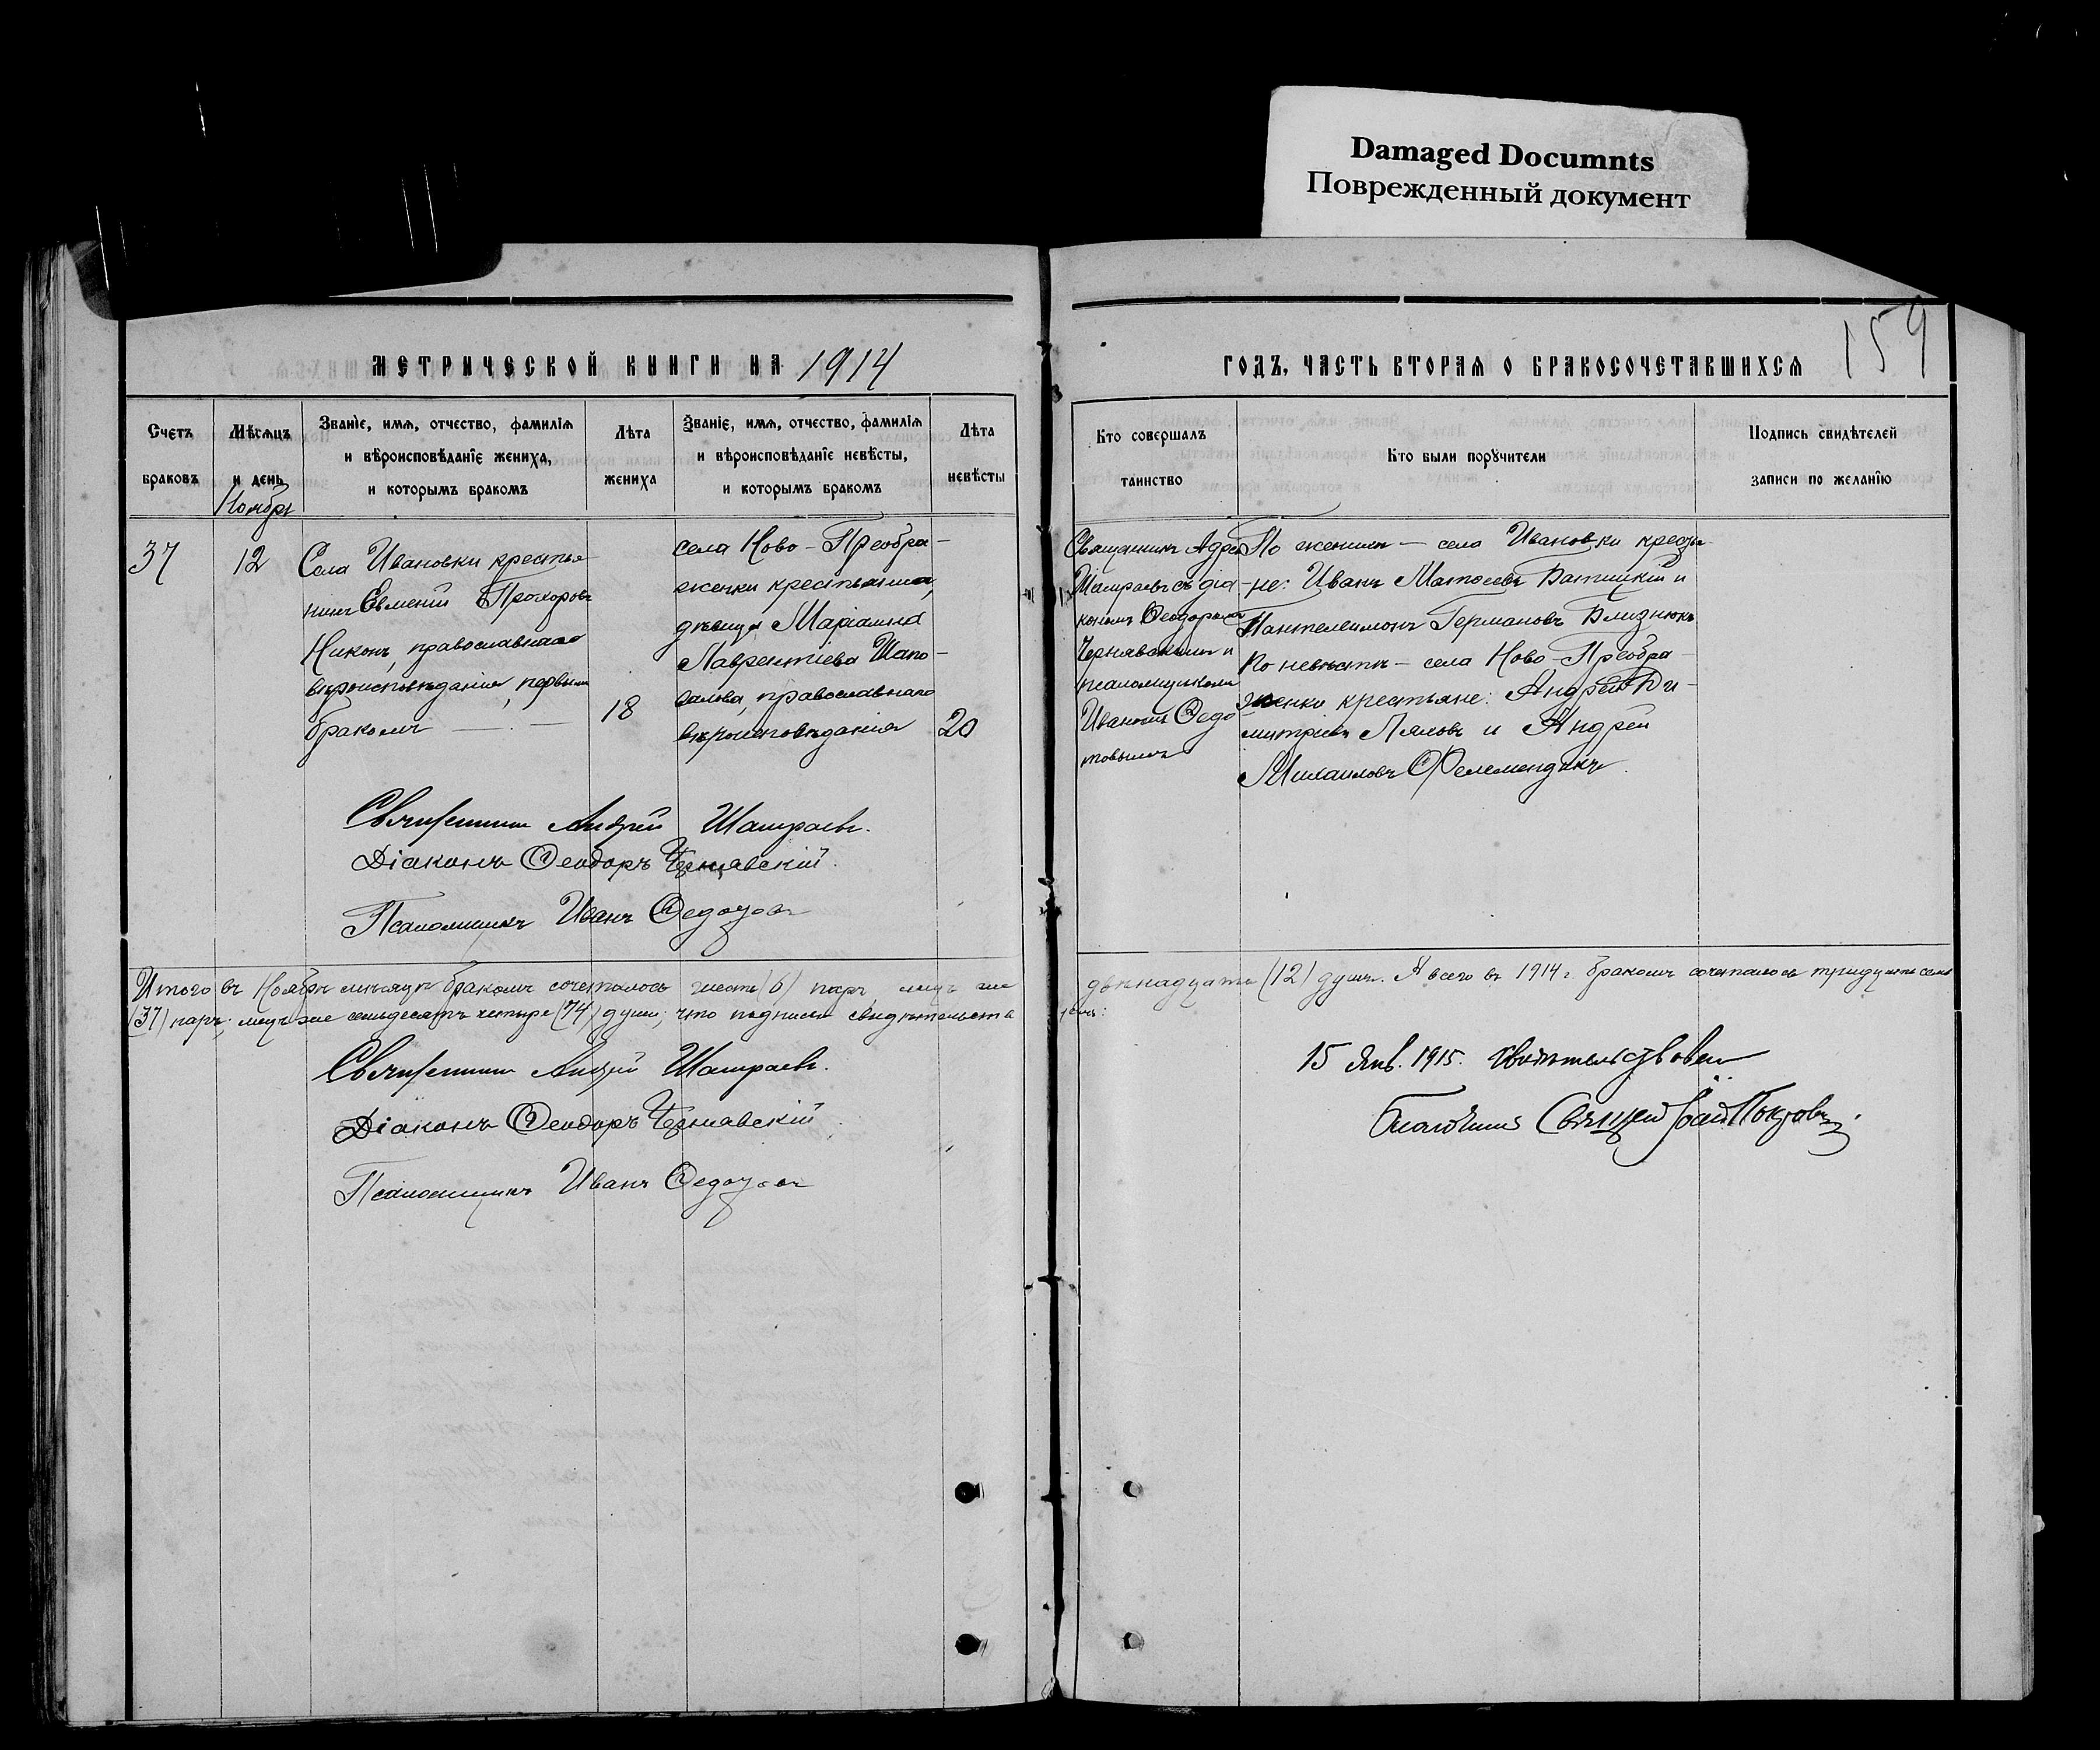 Damaged Documnts
Поврежденный документ
159
МЕТРИЧЕСКОЙ КНИГИ НА 1914
ГОДЪ, ЧАСТЬ ВТОРАЯ О БРАКОСОЧЕТАВШИХСЯ
Счетъ
браковъ
Мѣсяцъ
и день
Ноябрь
Званіе, имя, отчество, фамилія
и вѣроисповѣданіе жениха,
и которымъ бракомъ
Лѣта
жениха
Званіе, имя, отчество, фамилія
и вѣроисповѣданіе невѣсты,
и которымъ бракомъ
Лѣта
невѣсты
Кто совершалъ
таинство
Кто были поручители
Подпись свидѣтелей
записи по желанію
37
12
Села Ивановки крестья
нинъ Евменій Прохоровъ
Никонъ, православнаго
вѣроисповѣданія, первымъ
бракомъ
18
села Ново-Преобра-
женки крестьянина,
дѣвица Маріамна
Лаврентіева Шапо-
валова, православнаго
вѣроисповѣданія
20
Священникъ
Шашраевъ съ діа
кономъ Ѳеодоромъ
Чернявскимъ и
псаломщикомъ
Иваномъ Ѳедо
товымъ
По женихѣ — села Ивановки крестья-
не: Иванъ Матѳеевъ и
Пантелеимонъ Германовъ Близнюкъ
По невѣстѣ — села Ново-Преобра-
женки крестьяне: Андрей Ди-
митріевъ Ляховъ и Андрей
Михаиловъ
Священникъ Андрей Шашраевъ.
Діаконъ Ѳеодоръ Чернявскій.
Псаломщикъ Иванъ Ѳедотовъ
Итого въ Ноябрѣ мѣсяцѣ бракомъ сочеталось шесть (6) паръ, лицъ же
двѣнадцать (12) душъ. А всего въ 1914 г. бракомъ сочеталось тридцать семь
(37) паръ; лицъ же семьдесятъ четыре (74) души; что подписью свидѣтельств
уемъ:
Священникъ Андрей Шашраевъ.
Діаконъ Ѳеодоръ Чернявскій
Псаломщикъ Иванъ Ѳедотовъ
15 Янв. 1915. свидѣтельствовалъ
Благочинный Священ. Покровъ